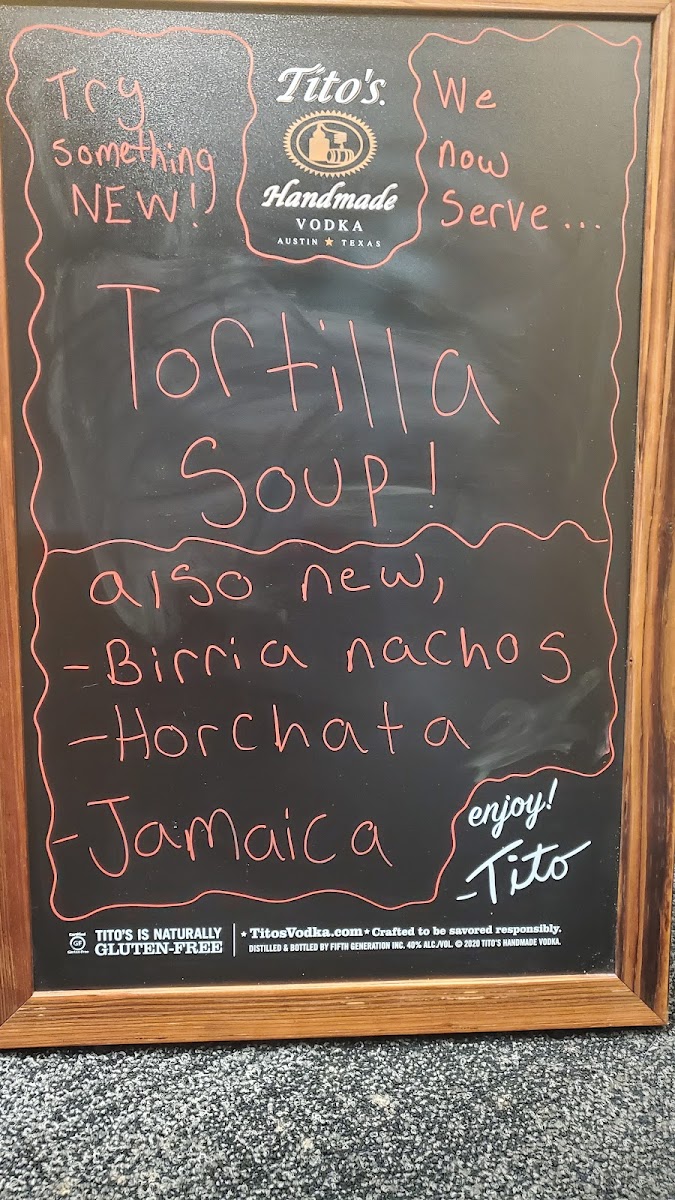 Try
something
NEW!
Tito's
Handmade
VODKA
AUSTIN ★ TEXAS
We
now
Serve...
Tortilla
Soup!
also new,
-Birria nachos
-Horchata
-Jamaica
enjoy!
-Tito
Certified
GF
Gluten-Free
TITO'S IS NATURALLY
GLUTEN-FREE
★ TitosVodka.com ★ Crafted to be savored responsibly.
DISTILLED & BOTTLED BY FIFTH GENERATION INC. 40% ALC./VOL. © 2020 TITO'S HANDMADE VODKA.